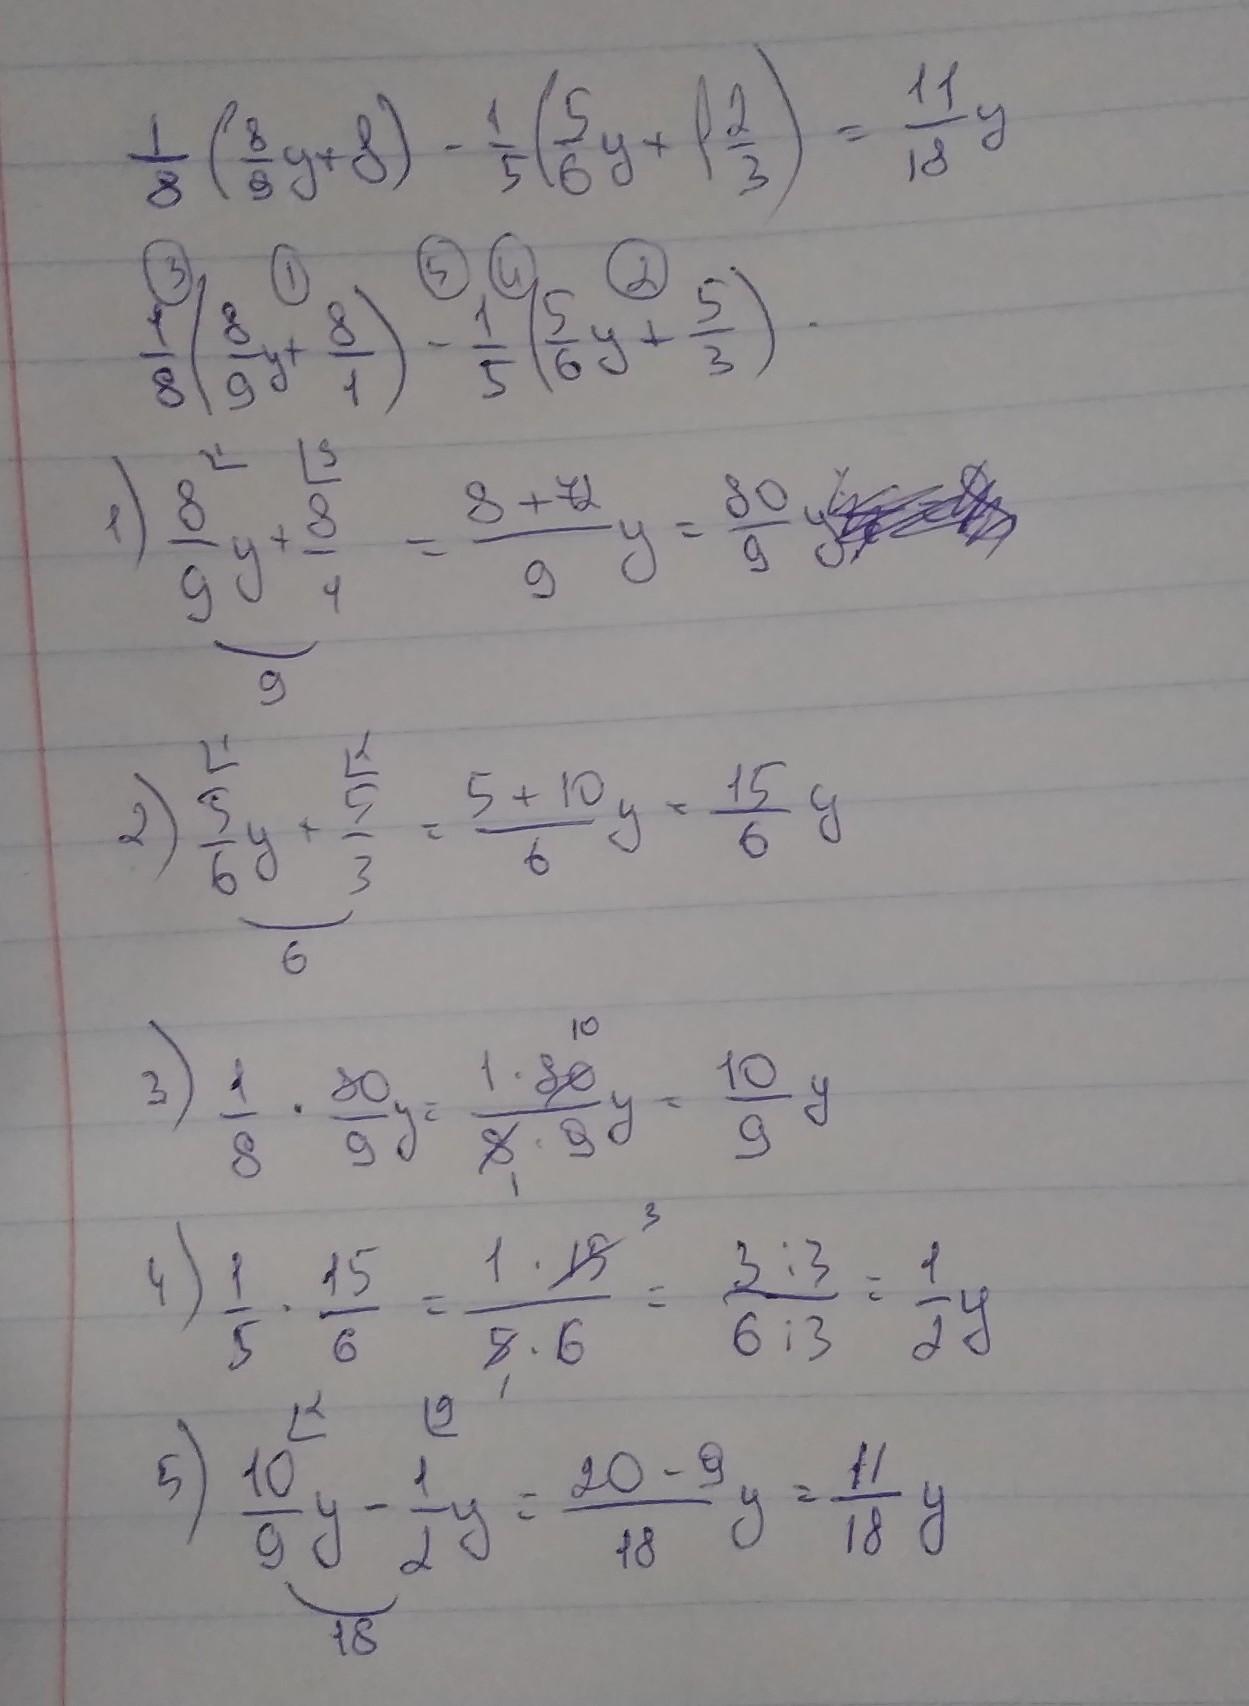 1/8 (8/9 y + 8) - 1/5 (5/6 y + 1 2/3) = 11/18 y
③ ① ⑤ ④ ②
1/8 (8/9 y + 8/1) - 1/5 (5/6 y + 5/3) .
1) 8/9 y + 8/1 = 8+72/9 y = 80/9 y
9
2) 5/6 y + 5/3 = 5+10/6 y = 15/6 y
6
3) 1/8 · 80/9 y = 1·80/8·9 y = 10/9 y
4) 1/5 · 15/6 = 1·15/5·6 = 3:3/6:3 = 1/2 y
5) 10/9 y - 1/2 y = 20-9/18 y = 11/18 y
18